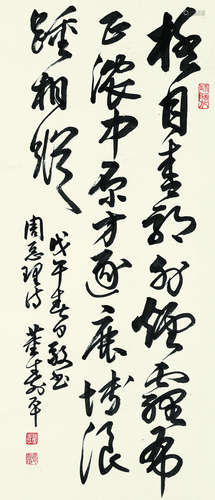 極目青郊外煙霾布
正濃中原方逐鹿博浪
踵相蹤
戊午春日敬书
周总理诗 董壽平